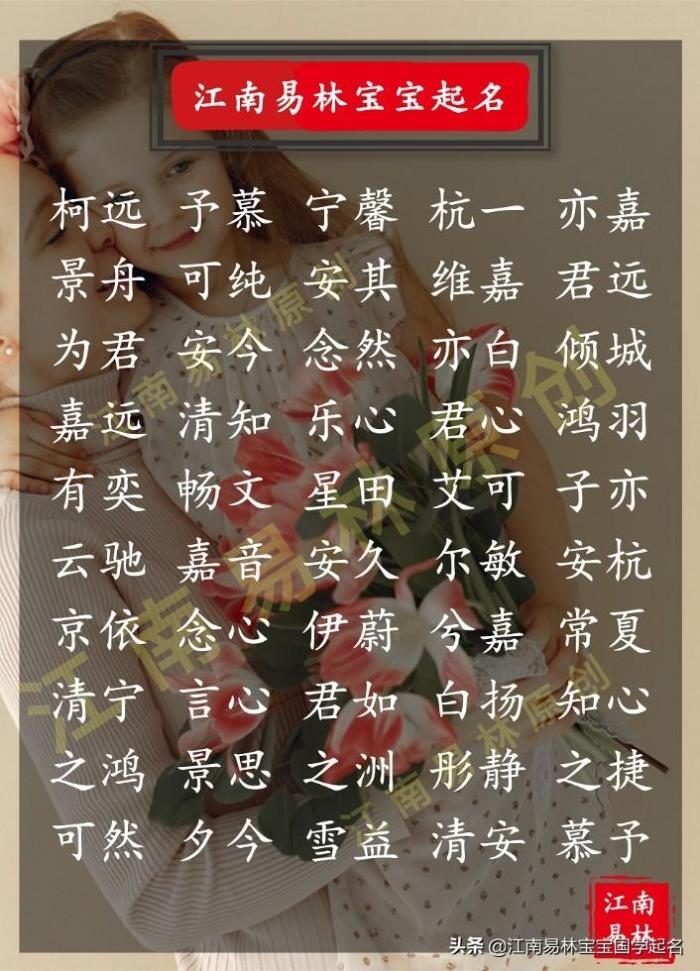 江南易林宝宝起名
柯远 予慕 宁馨 杭一 亦嘉
景舟 可纯 安其 维嘉 君远
为君 安今 念然 亦白 倾城
嘉远 清知 乐心 君心 鸿羽
有奕 畅文 星田 艾可 子亦
云驰 嘉音 安久 尔敏 安杭
京依 念心 伊蔚 兮嘉 常夏
清宁 言心 君如 白扬 知心
之鸿 景思 之洲 彤静 之捷
可然 夕今 雪益 清安 慕予
江南易林原创
江南易林原创
江南易林原创
江南
易林
头条 @江南易林宝宝国学起名